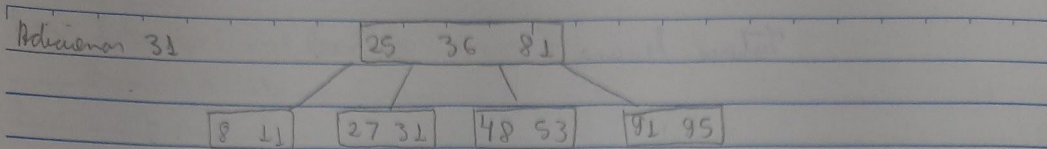 Adicionar 31 25 36 81
8 11 27 31 48 53 91 95